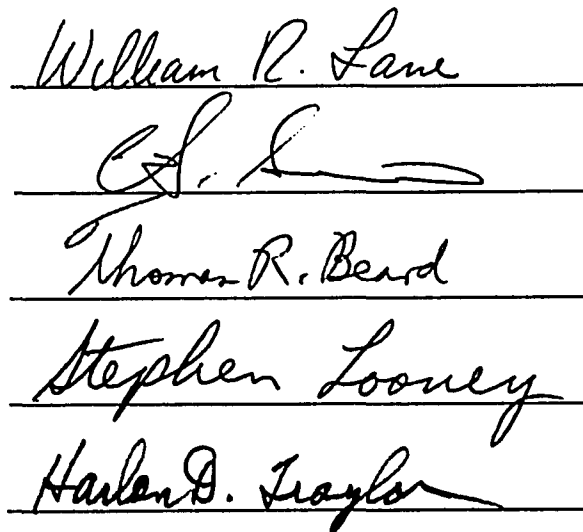 William R. Lane
C.
Thomas R. Beard
Stephen Looney
Harlan D. Traylor